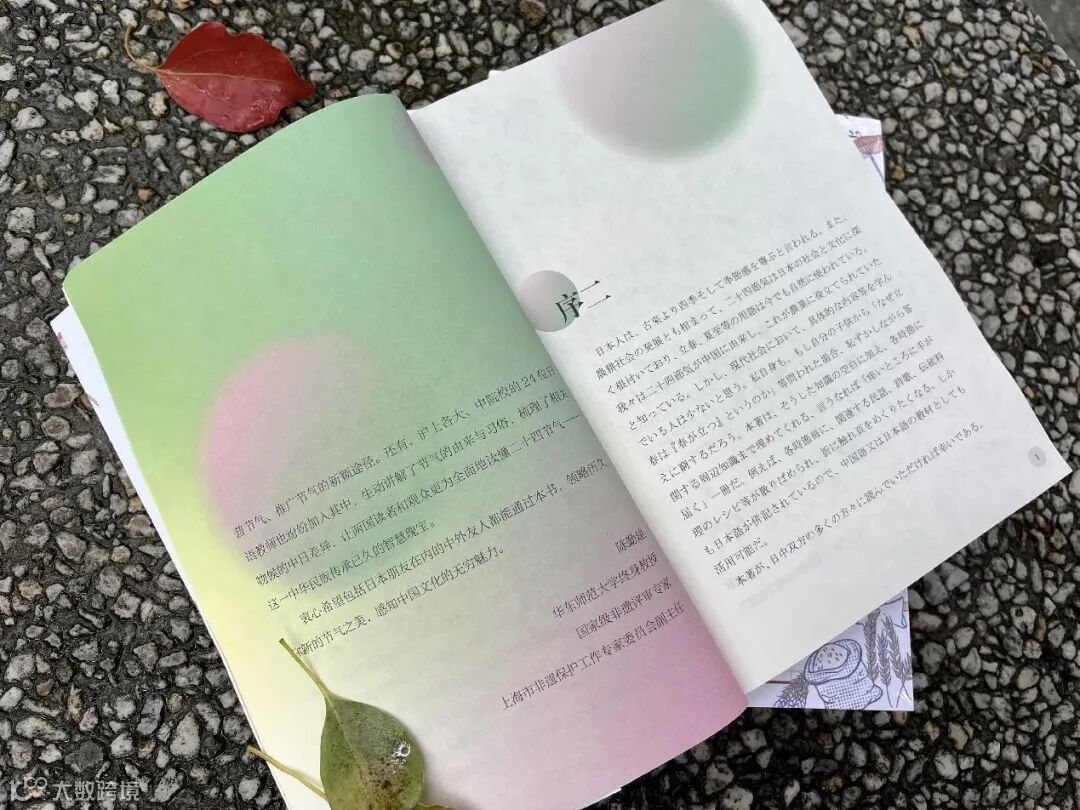 音节气、推广节气的新颖途径。还有，沪上各大、中院校的24位日
语教师也纷纷加入其中，生动讲解了节气的由来与习俗，梳理了相关
物候的中日差异，让两国读者和观众更为全面地读懂二十四节气——
这一中华民族传承已久的智慧瑰宝。
衷心希望包括日本朋友在内的中外友人都能通过本书，领略历久
弥新的节气之美，感知中国文化的无穷魅力。
陈勤建
华东师范大学终身教授
国家级非遗评审专家
上海市非遗保护工作专家委员会副主任
序二
日本人は、古来より四季そして季節感を尊ぶと言われる。また、
農耕社会の発展とも相まって、二十四節気は日本の社会と文化に深
く根付いており、立春、夏至等の用語は今でも自然に使われている。
我々は二十四節気が中国に由来し、これが農業に役立てられていた
と知っている。しかし、現代社会において、具体的な内容等を学ん
でいる人は少ないと思う。私自身も、もし自分の子供から「なぜ立
春は『春が立つ』というのか」等問われた場合、恥ずかしながら答
えに窮するだろう。本著は、そうした知識の空白に加え、各時節に
関する周辺知識まで埋めてくれる、言うなれば「痒いところに手が
届く」一冊だ。例えば、各段術節に、関連する民謡、詩歌、伝統料
理のレシピ等が散りばめられ、折に触れ頁をめくりたくなる。しか
も日本語が併記されているので、中国語又は日本語の教材としても
活用可能だ。
本著が、日中双方の多くの方々に読んでいただければ幸いである。
1
大数跨境